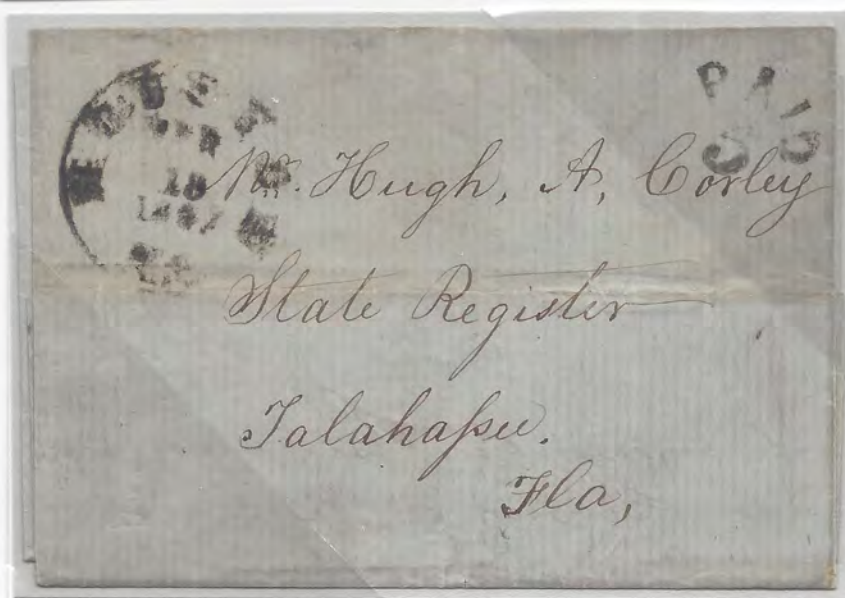 PAID
3
SEP
18
Mr. Hugh, A, Corley
State Register
Talahaſsee.
Fla,